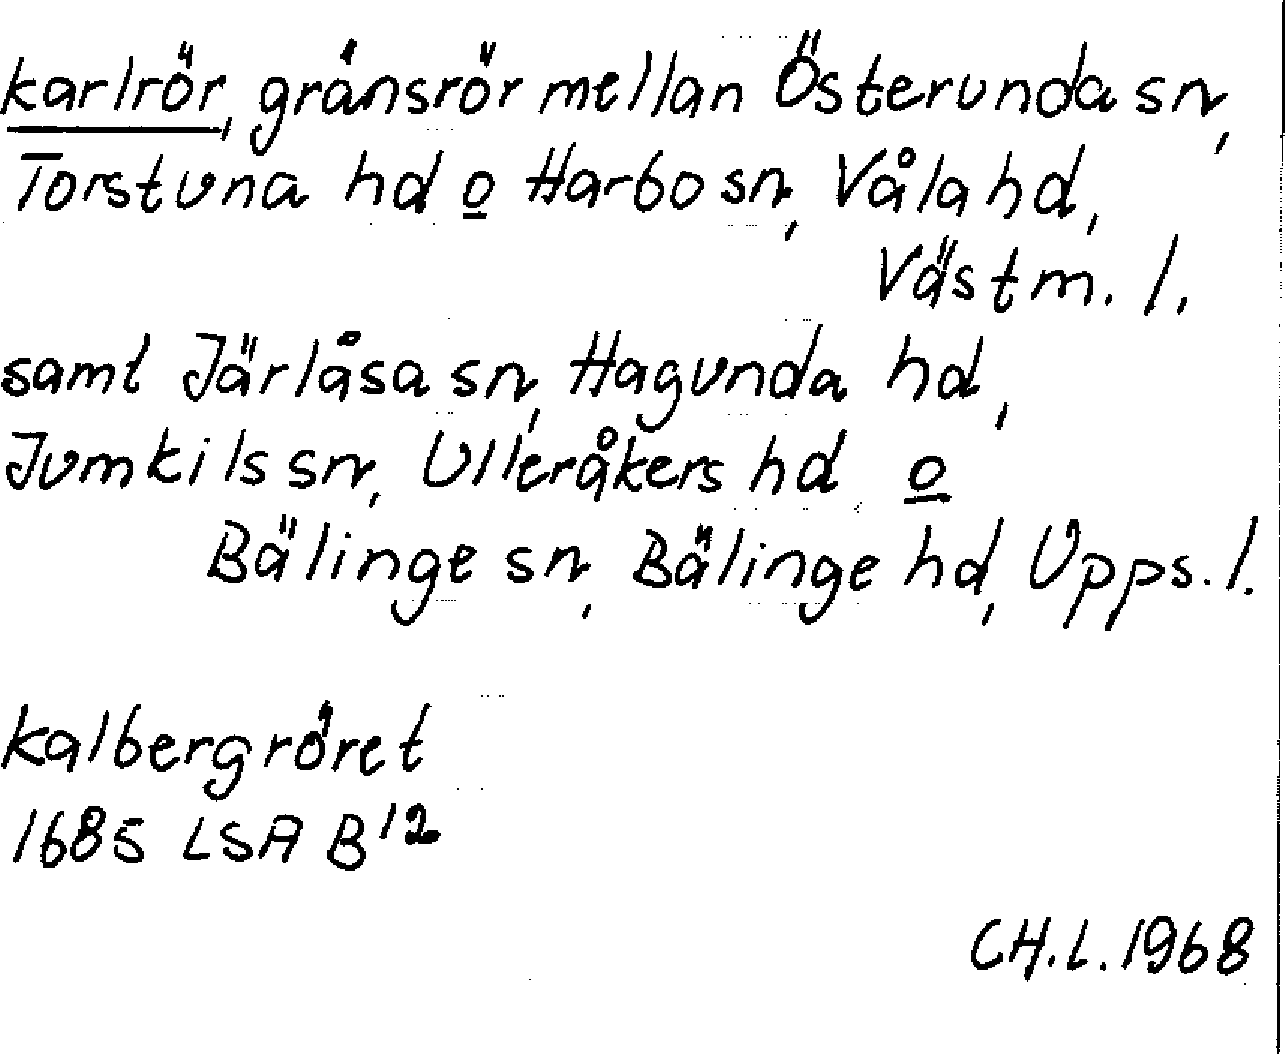 karlrör, gränsrör mellan Österunda sn,
Torstuna hd o Harbo sn, Våla hd,
Västm. l.
samt Järlåsa sn, Hagunda hd,
Jumkils sn, Ulleråkers hd o
Bälinge sn, Bälinge hd, Upps. l.
kalbergröret
1685 LSA B¹²
CH.L. 1968